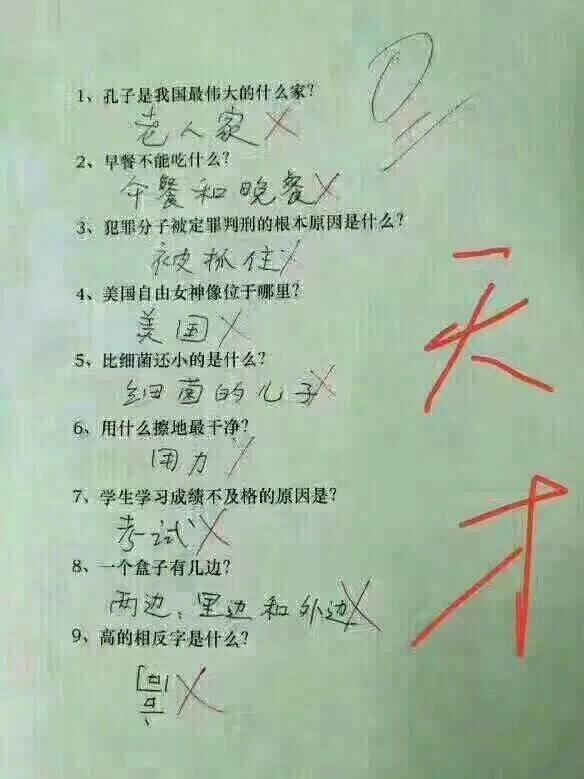 1、孔子是我国最伟大的什么家?
老人家
2、早餐不能吃什么?
午餐和晚餐
3、犯罪分子被定罪判刑的根本原因是什么?
被抓住
4、美国自由女神像位于哪里?
美国
5、比细菌还小的是什么?
细菌的儿子
6、用什么擦地最干净?
用力
7、学生学习成绩不及格的原因是?
考试
8、一个盒子有几边?
两边、里边和外边
9、高的相反字是什么?
0
天
才